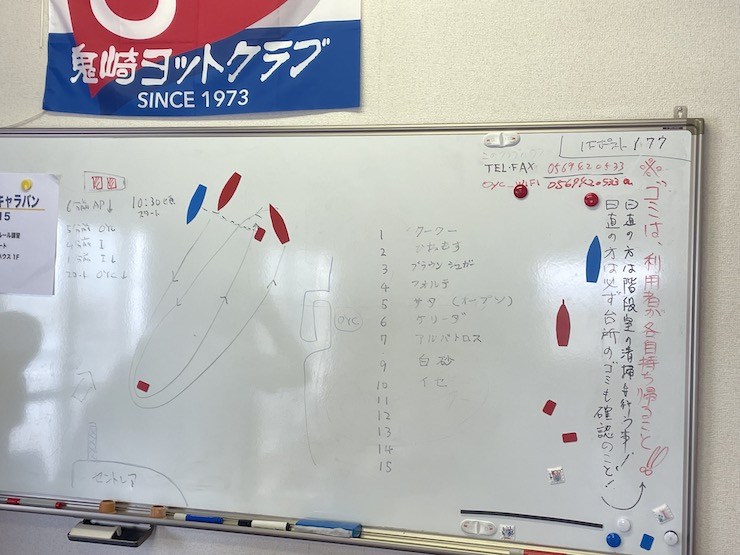 鬼崎ヨットクラブ
SINCE 1973
キャラバン
15
ルール講習
ート
ハウス 1F
6分前 AP↓
5分前 OYC
4分前 I
1分前 I↓
スタート OYC↓
10:30
スタート
OYC
セントレア
1 クークー
2
3 ブラウンシュガー
4 フォルテ
5 サタ (オープン)
6 ケリーダ
7 アルバトロス
8 白砂
9
10 イセ
11
12
13
14
15
TEL・FAX
OYC WiFi
※ゴミは、利用者が各自持ち帰ること!!
日直の方は階段室の清掃を行う事!
日直の方は必ず台所のゴミも確認のこと!